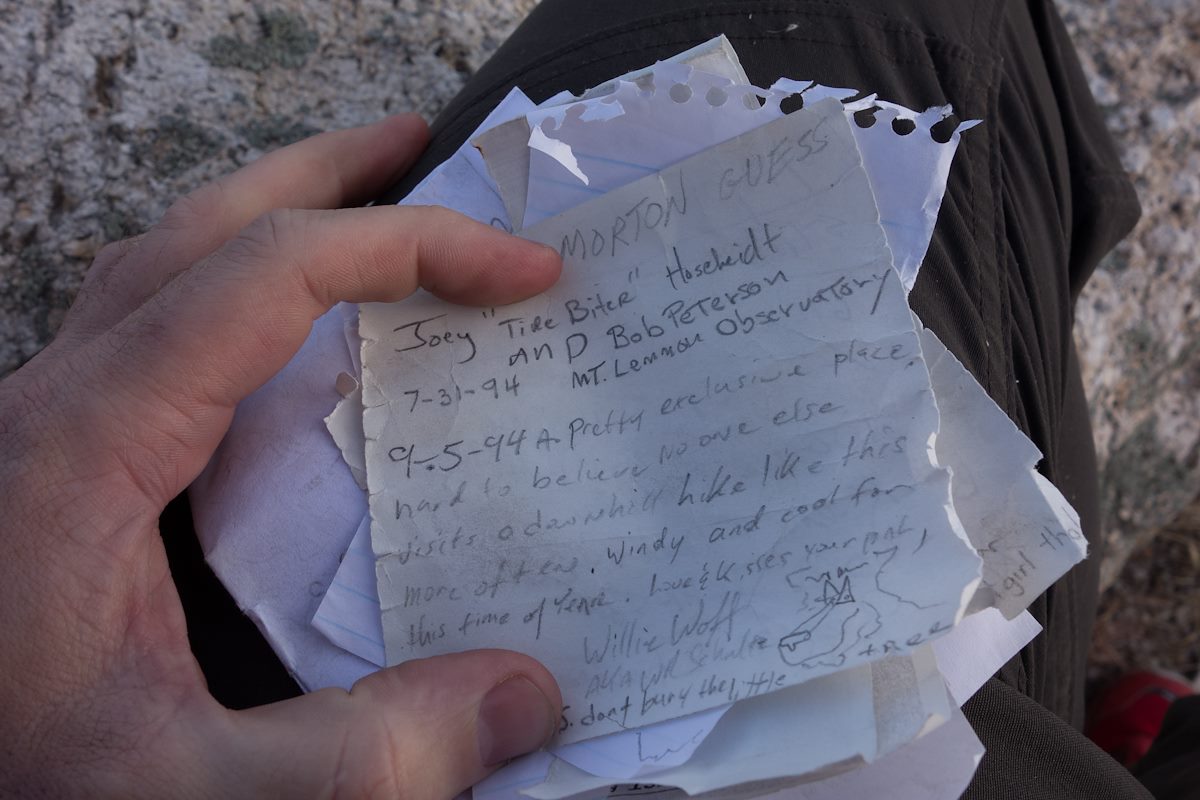 MORTON GUESS
Joey "Tire Biter" Hoscheidt
AND Bob Peterson
7-31-94 MT. Lemmon Observatory
9-5-94 A pretty exclusive place,
hard to believe no one else
visits a downhill hike like this
more often. Windy and cool for
this time of year. Love & Kisses your pal,
Willie Woff
AKA WR Schultz
S. dont bury the little
tree
girl tha